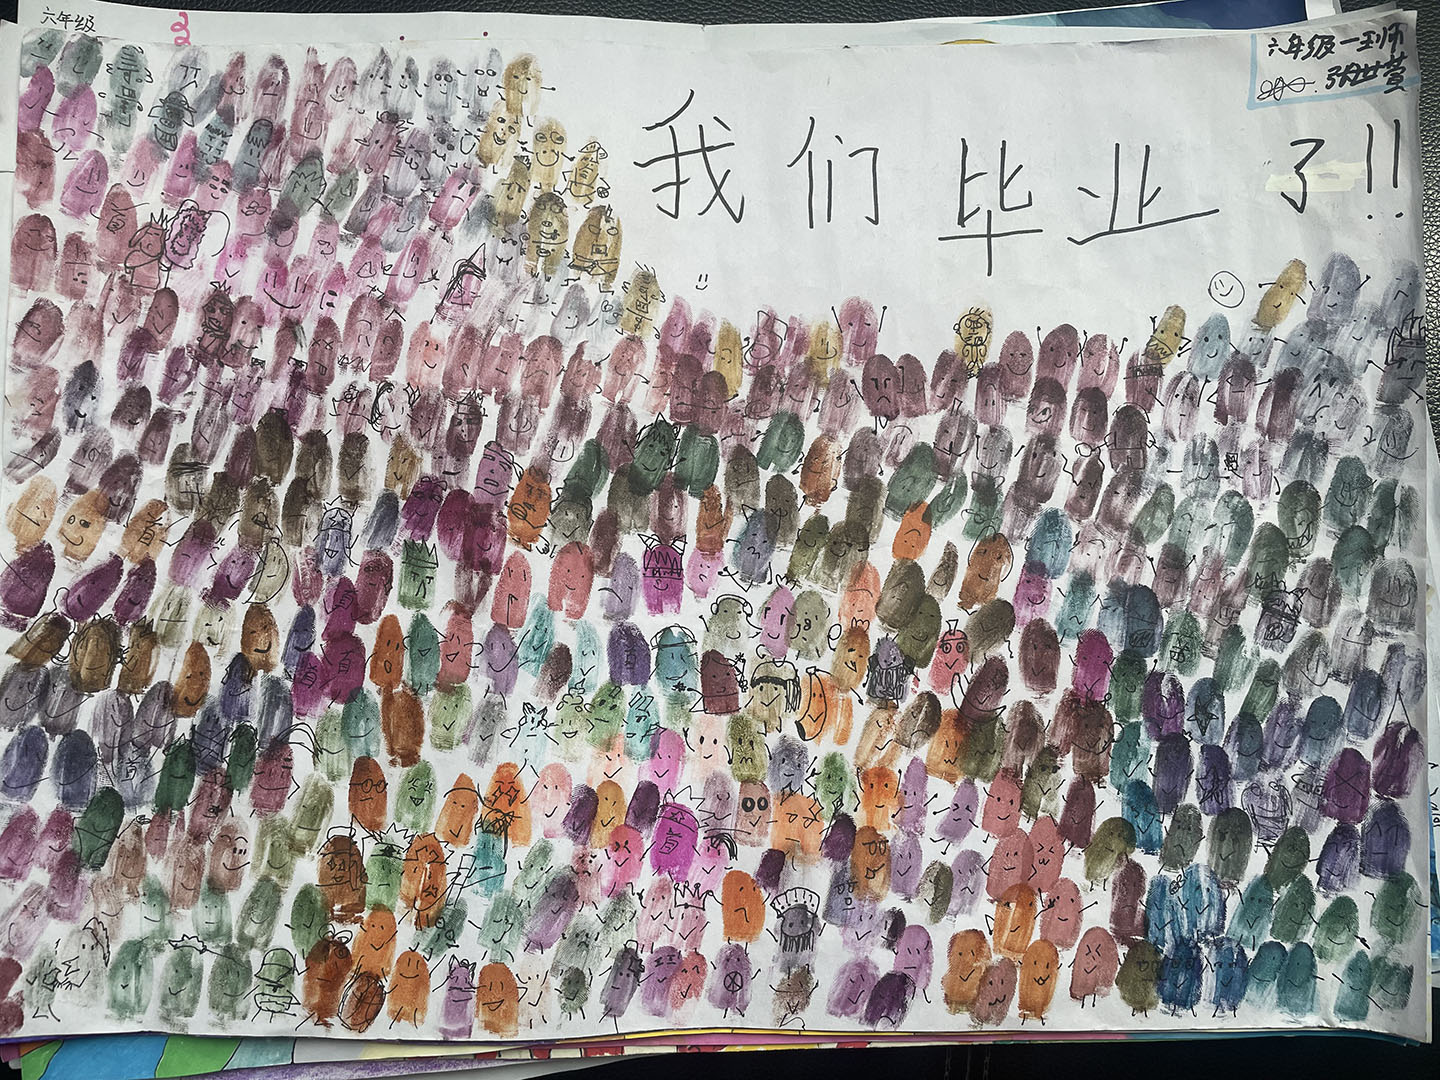 六年级
六年级一班
我们毕业了!!